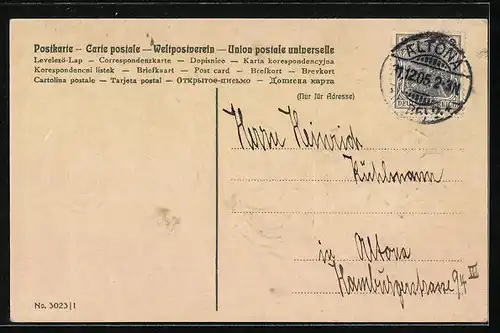 Postkarte – Carte postale – Weltpostverein – Union postale universelle
Levelező-Lap – Correspondenzkarte – Dopisnice – Karta korespondencyjna
Korespondencni listek – Briefkaart – Post card – Brefkort – Brevkort
Cartolina postale – Tarjeta postal – Открытое-письмо – Дописна карта
(Nur für Adresse)
ALTONA
12.05. 2-3N
Herrn Heinrich
Kühlmann
in Altona
Hamburgerstrasse 94 III
No. 3023|1